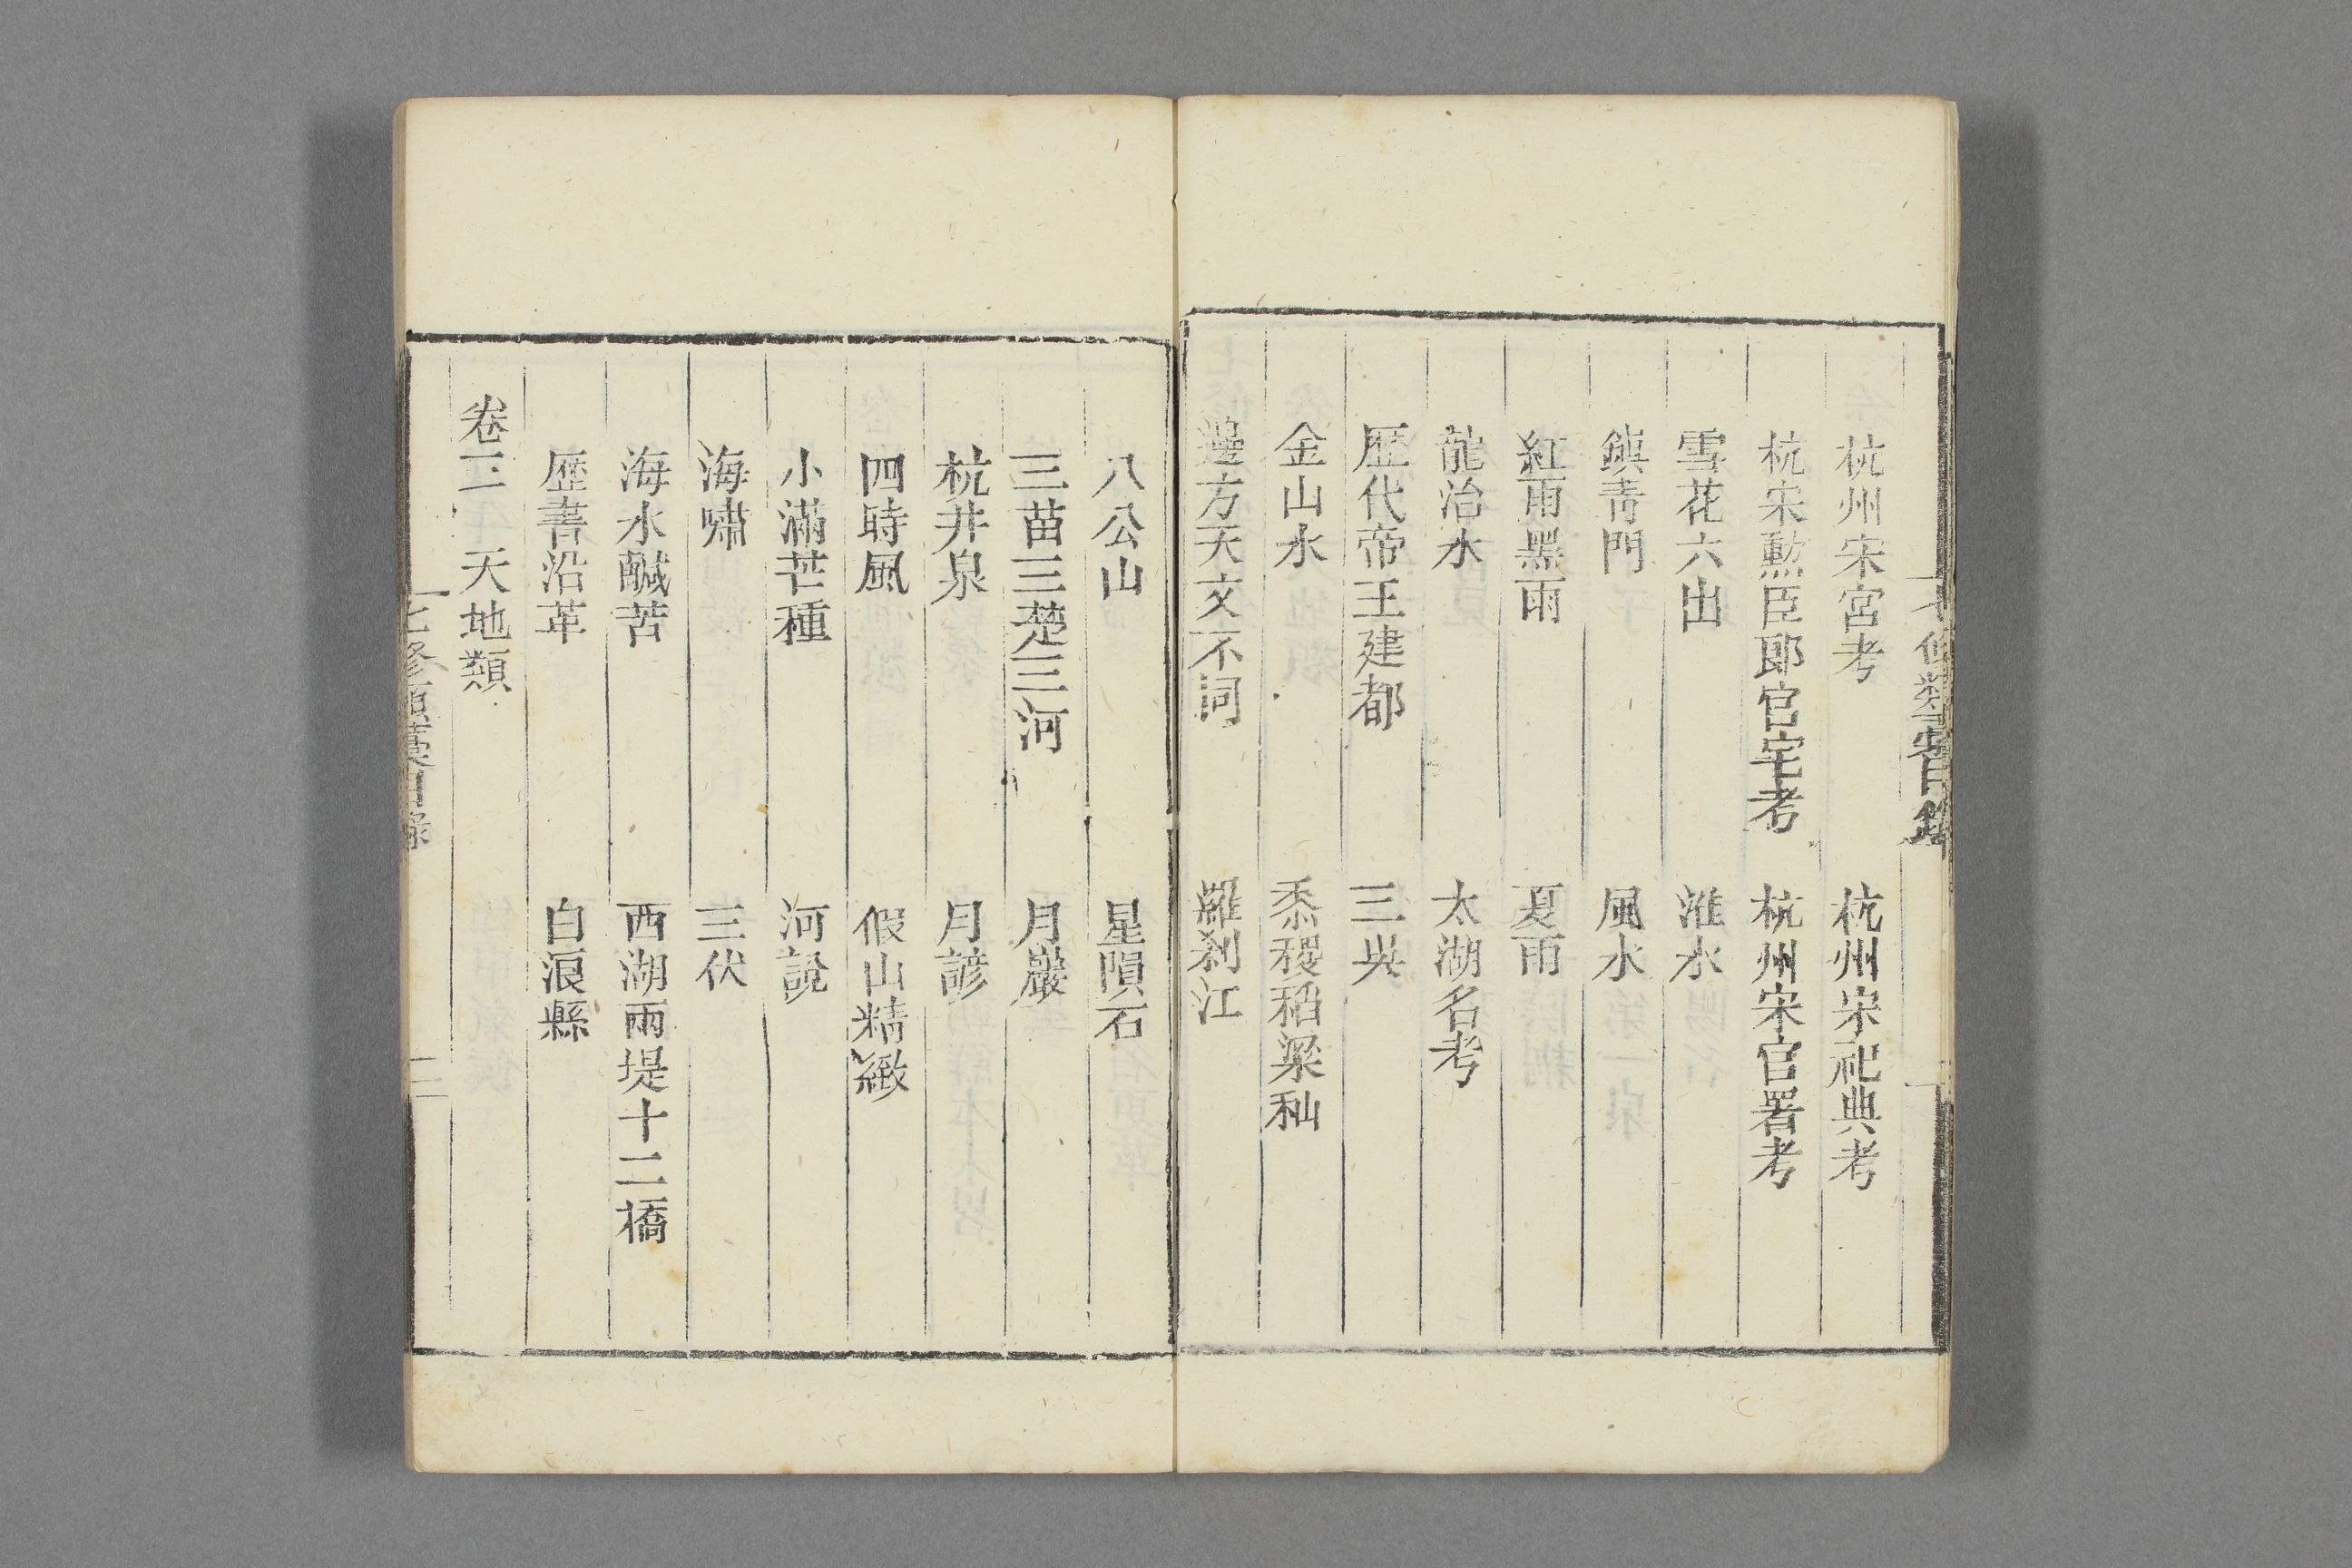 杭州宋宮考　杭州宋祀典考
杭宋勲臣郞官宅考　杭州宋官署考
雪花六出　淮水
鎮青門　風水
紅雨黑雨　夏雨
龍治水　太湖名考
歷代帝王建都　三吳
金山水　黍稷稻粱秈
邊方天文不同　羅刹江
八公山　星隕石
三苗三楚三河　月巖
杭井泉　月諺
四時風　假山精緻
小滿芒種　河說
海嘯　三伏
海水鹹苦　西湖兩堤十二橋
歷書沿革　白浪縣
卷三　天地類
七修類藁目錄　二